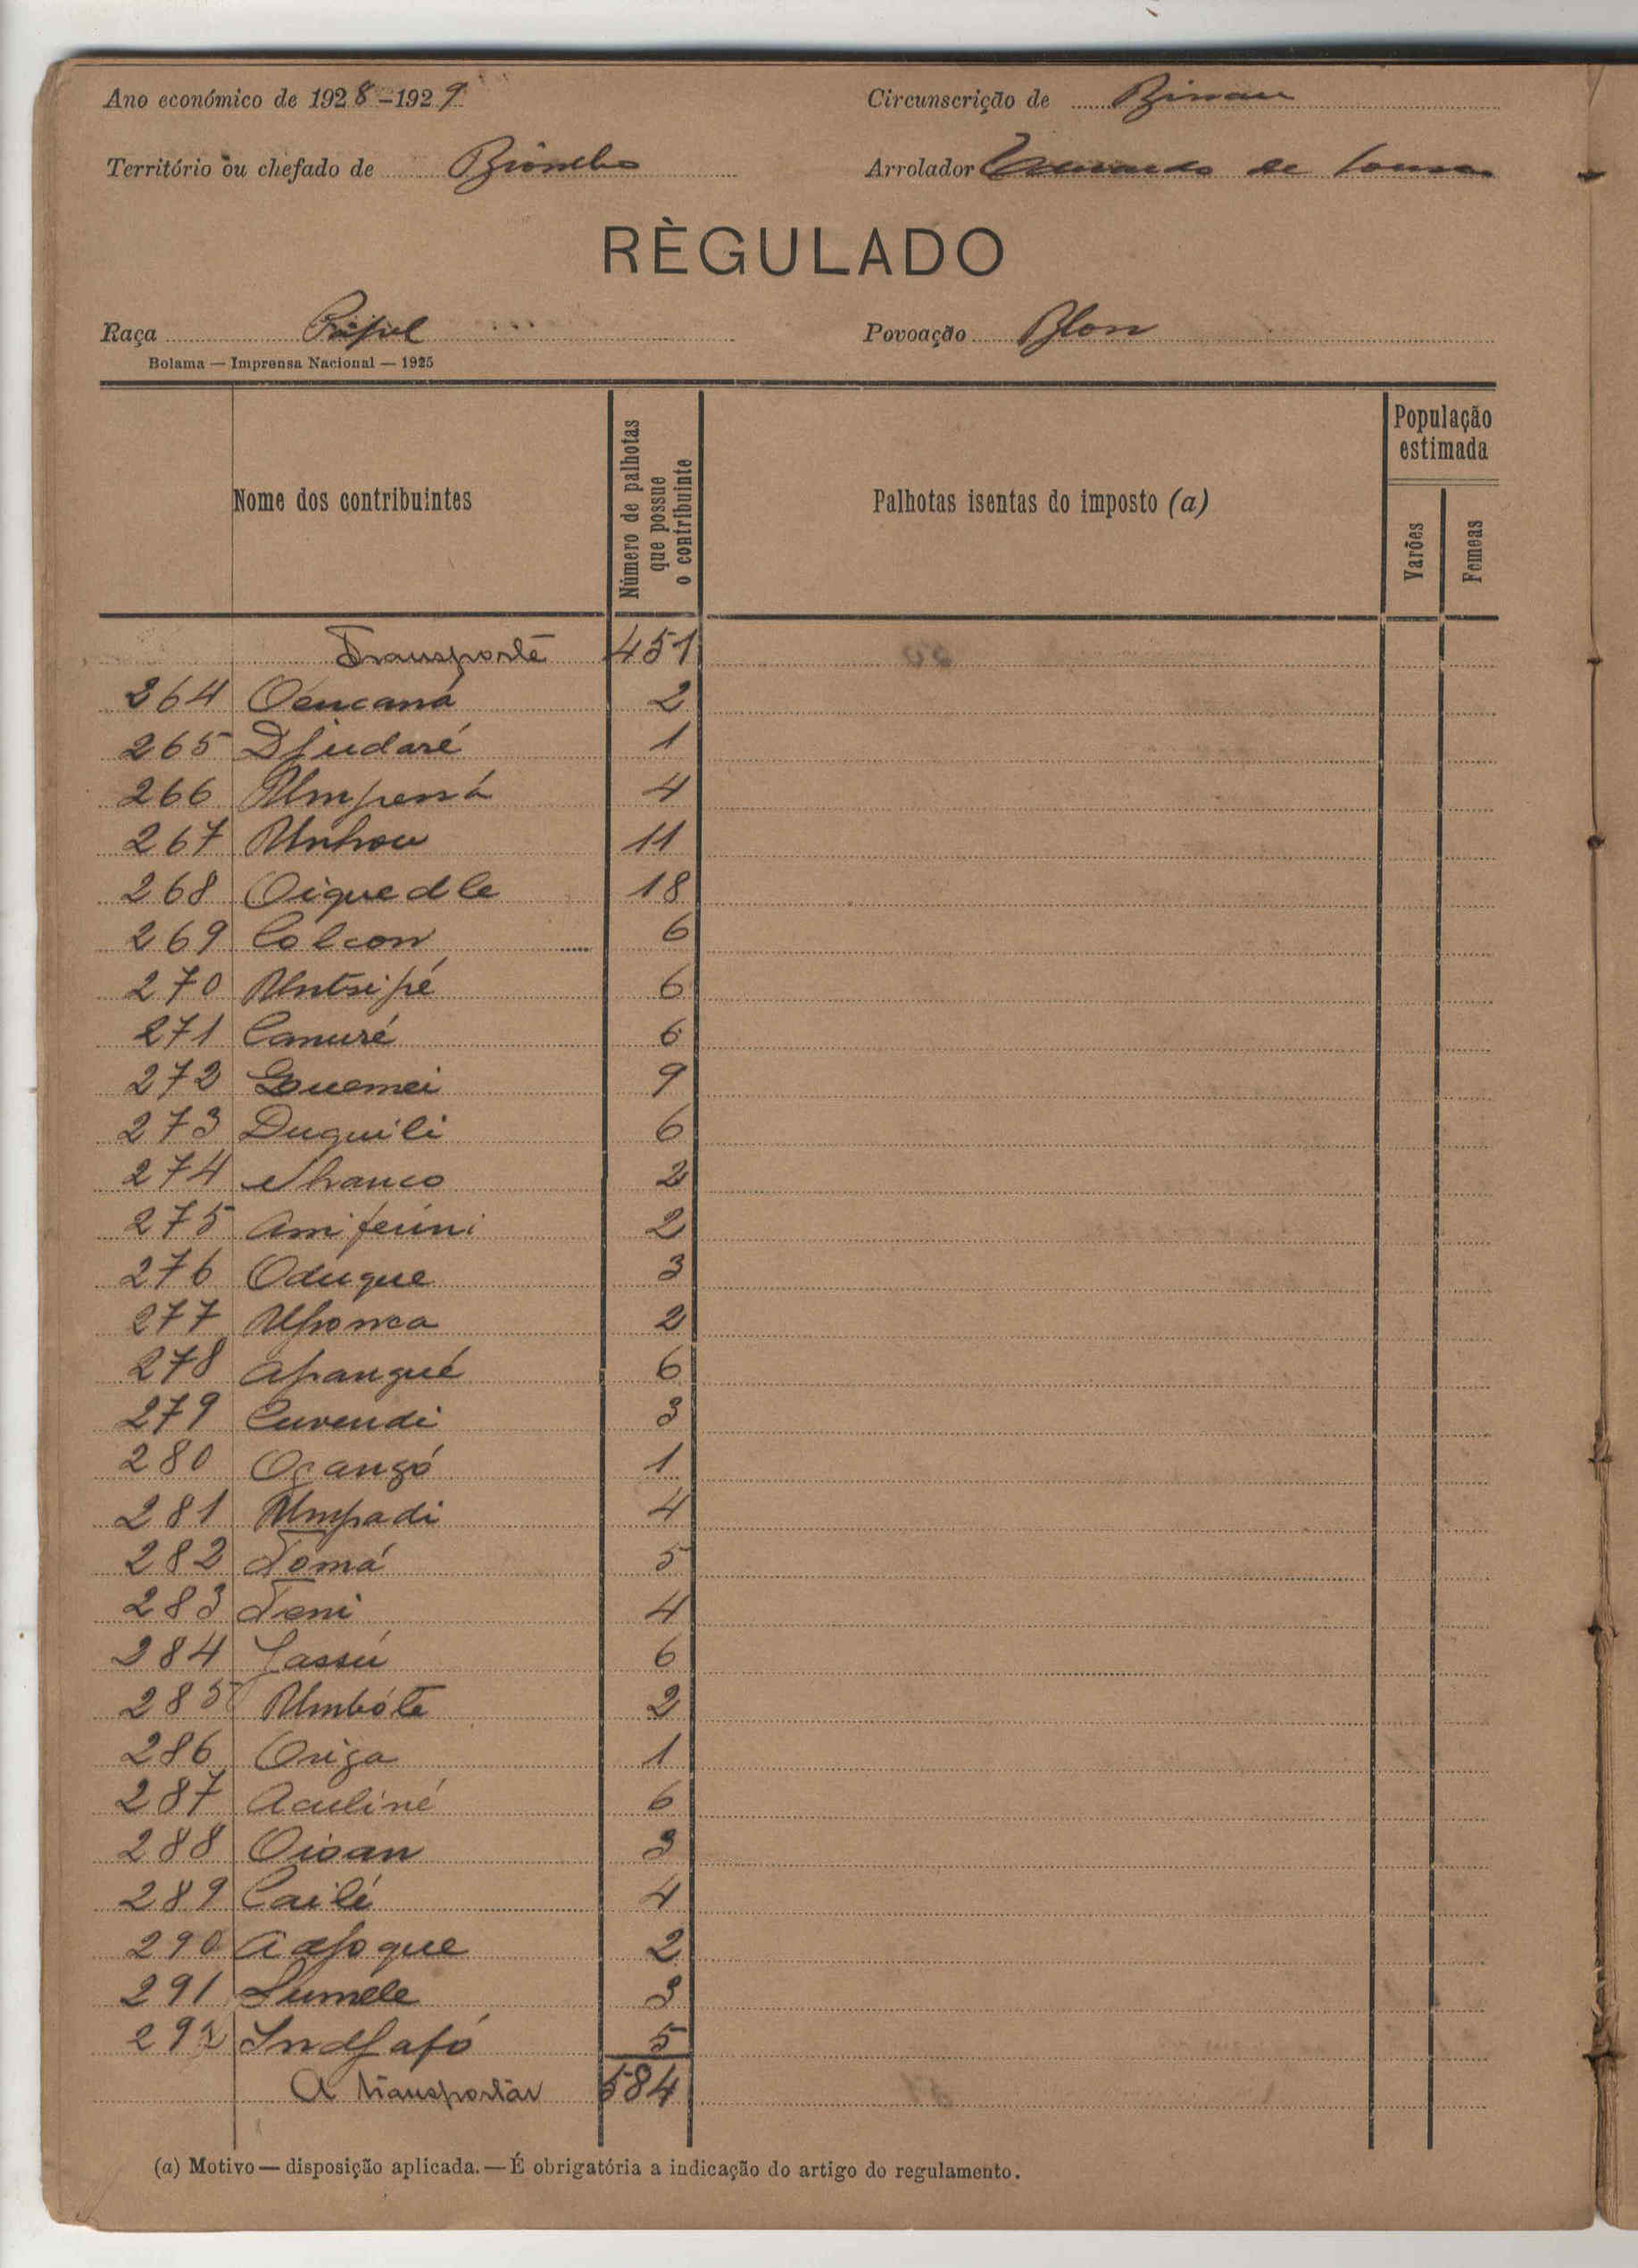 Ano económico de 1928-1929. Circunscrição de Bissau
Território ou chefado de Biombo Arrolador de Sousa
RÈGULADO
Raça Papel Povoação Blon
Bolama — Imprensa Nacional — 1925
Nome dos contribuintes
Número de palhotas que possue o contribuinte
Palhotas isentas do imposto (a)
População estimada
Varões
Femeas
Transporte 451
264 Oencaná 2
265 Djudaré 1
266 Umpená 4
267 Unhou 11
268 Oiquedle 18
269 Cólcon 6
270 Untsipé 6
271 Canuré 6
272 Guemei 9
273 Duquili 6
274 Nhanco 2
275 Amifeuni 2
276 Oduque 3
277 2
278 Apangué 6
279 Cuvendi 3
280 Oçangó 1
281 Umpadi 4
282 Tomá 5
283 Teni 4
284 Jassú 6
285 Umbóte 2
286 Origa 1
287 Aculiné 6
288 Oioan 3
289 Cailé 4
290 2
291 Sumele 3
292 Indjafó 5
A transportar 584
(a) Motivo — disposição aplicada. — É obrigatória a indicação do artigo do regulamento.